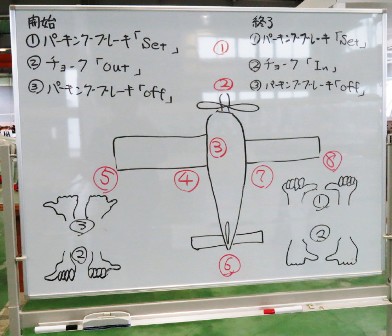 開始
①パーキングブレーキ「Set」
②チョーク「Out」
③パーキングブレーキ「off」
終了
①パーキングブレーキ「Set」
②チョーク「In」
③パーキングブレーキ「off」
①
②
③
④
⑤
⑥
⑦
⑧
③
②
①
②